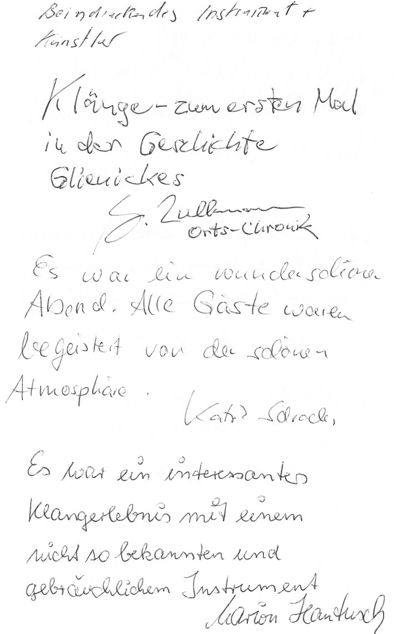 Beindruckendes Instrument +
Künstler
Klänge - zum ersten Mal
in der Geschichte
Glienickes
Orts-Chronik
Es war ein wunderschöner
Abend. Alle Gäste waren
begeistert von der schönen
Atmosphäre.
Es war ein interessantes
Klangerlebnis mit einem
nicht so bekannten und
gebräuchlichem Instrument
Marion Hantusch